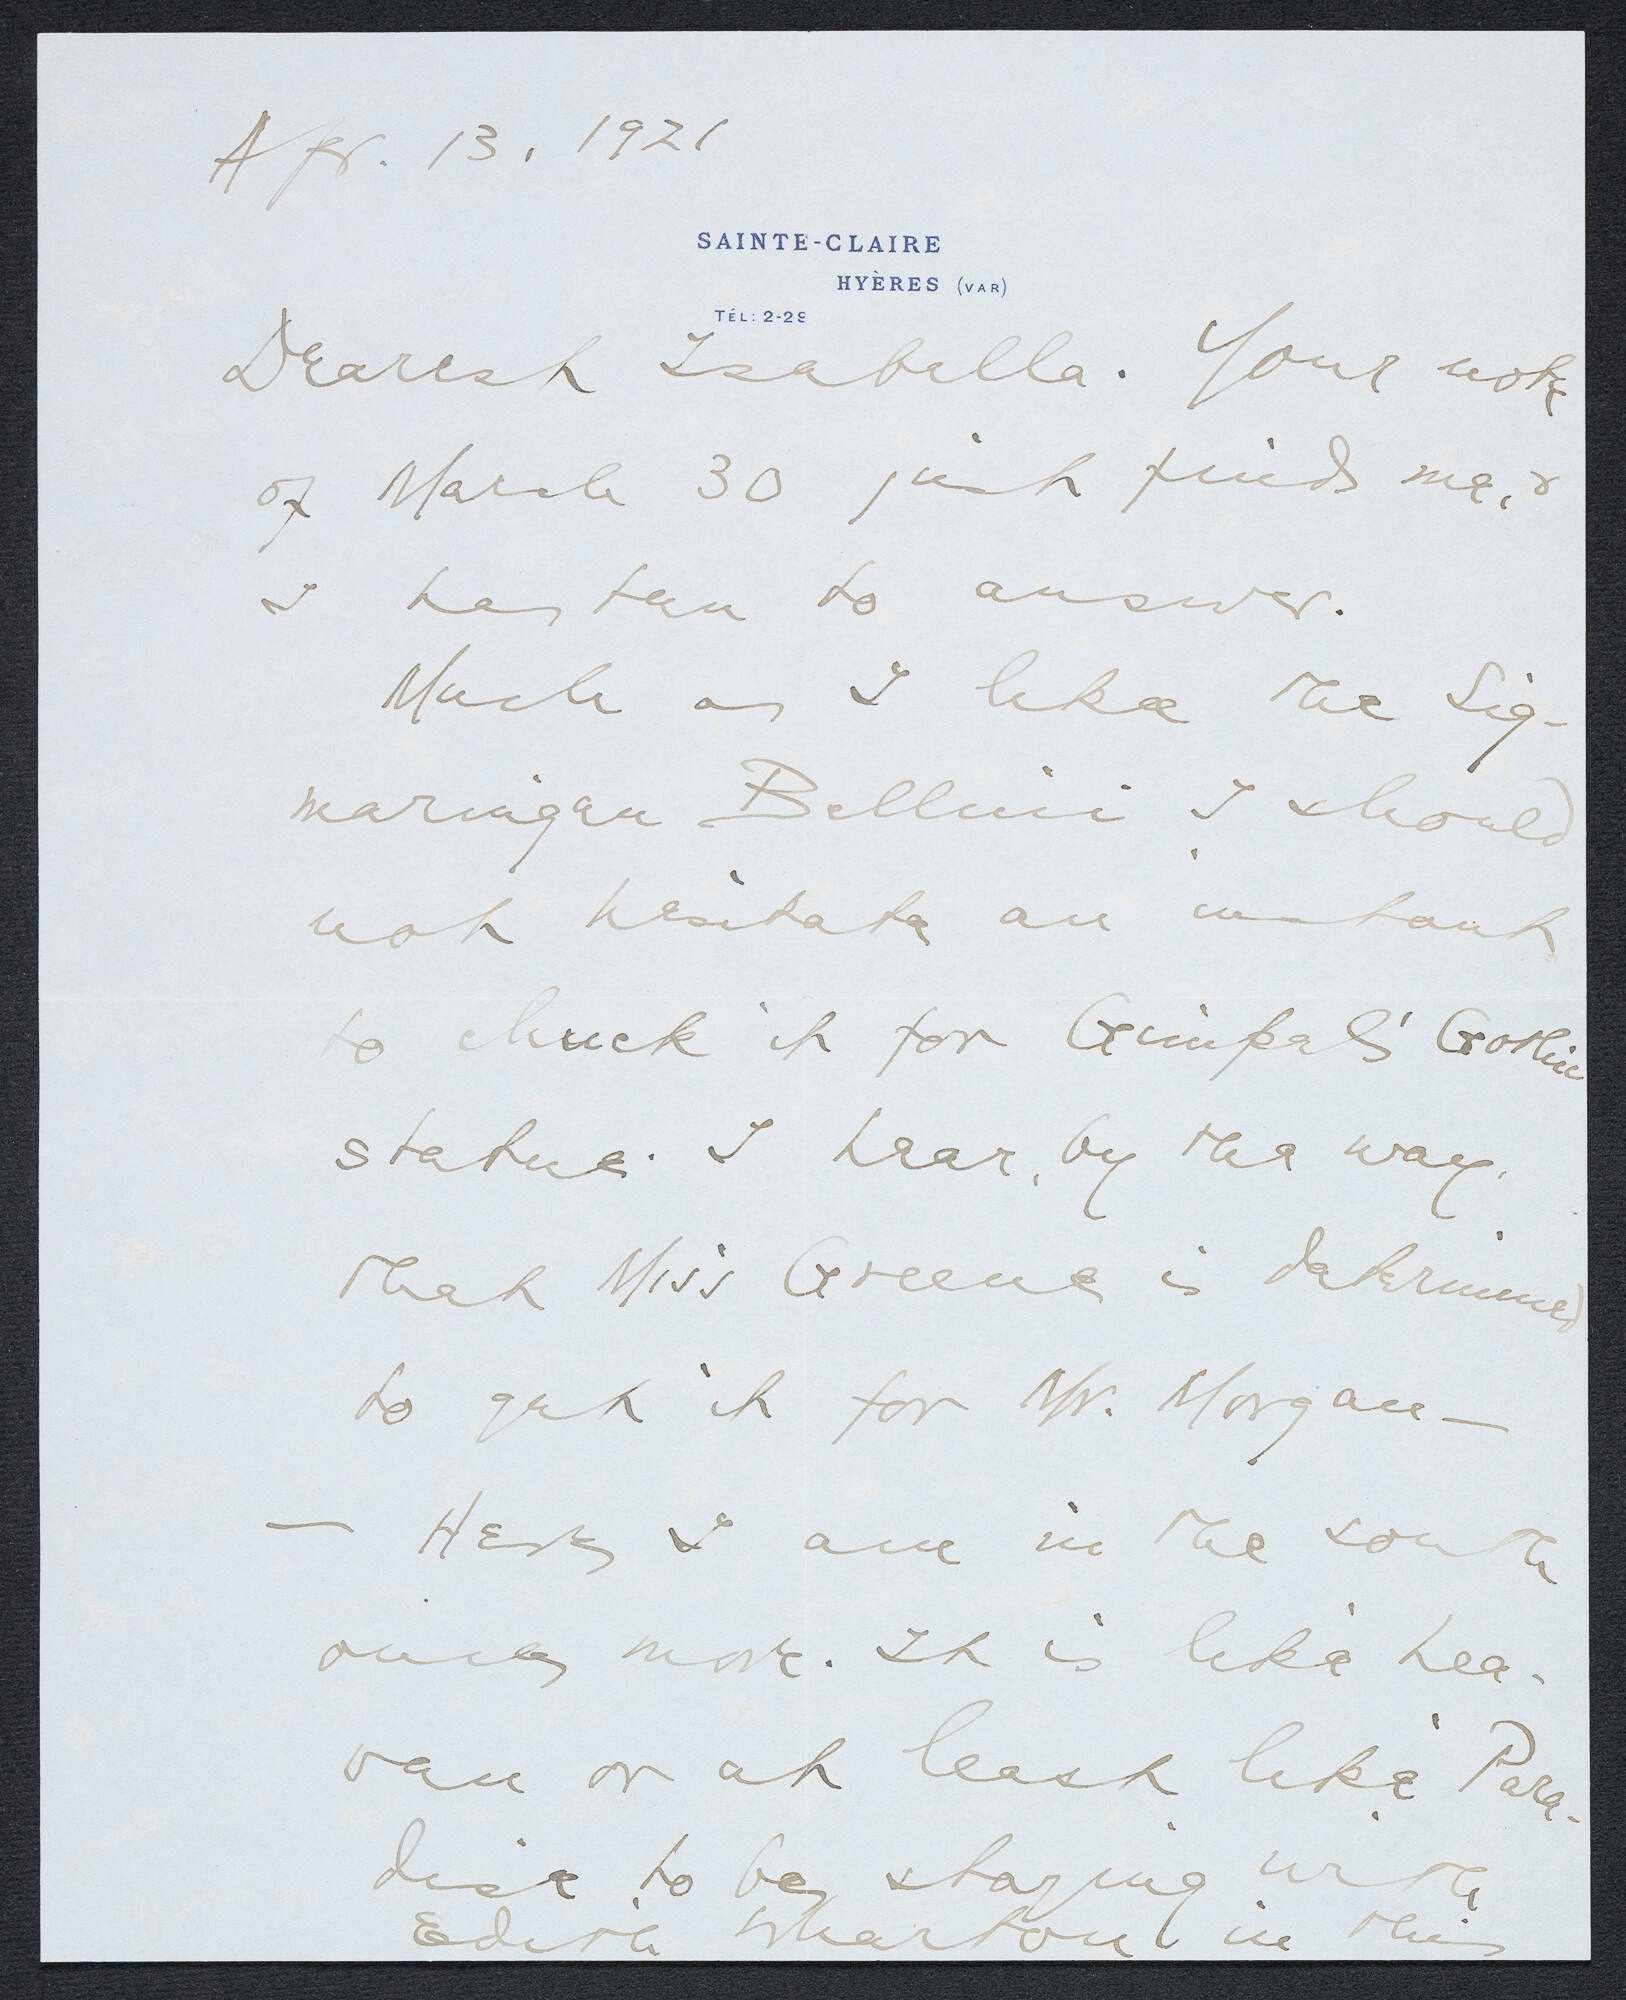 Apr. 13, 1921
SAINTE-CLAIRE
HYÈRES (VAR)
TÉL: 2-29
Dearest Isabella. Your note
of March 30 just finds me, &
I hasten to answer.
Much as I like the Sig-
maringen Bellini I should
not hesitate an instant
to chuck it for Gimpel's Gothic
statue. I hear, by the way,
that Miss Greene is determined
to get it for Mr. Morgan —
— Here I am in the south
once more. It is like hea-
ven or at least like Para-
dise to be staying with
Edith Wharton in this